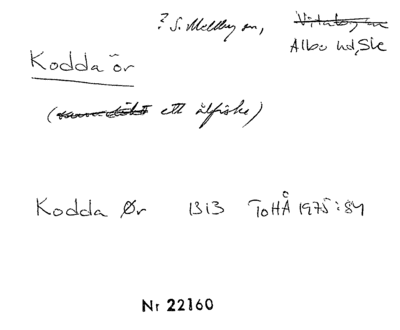 ? S. Mellby sn,
Albo hd, Sk
Kodda ör
( ett ålfiske)
Kodda Ør 1313 ToHÅ 1975:84
Nr 22160